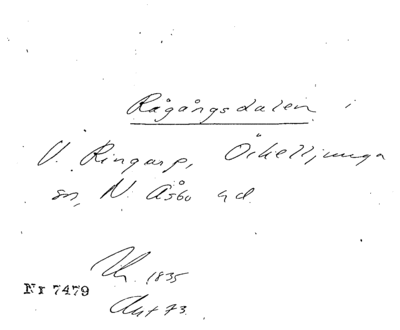 Rågångsdalen i
V. Ringarp, Örkelljunga
sn, N. Åsbo hd.
1835
Nr 7479
Akt 73.